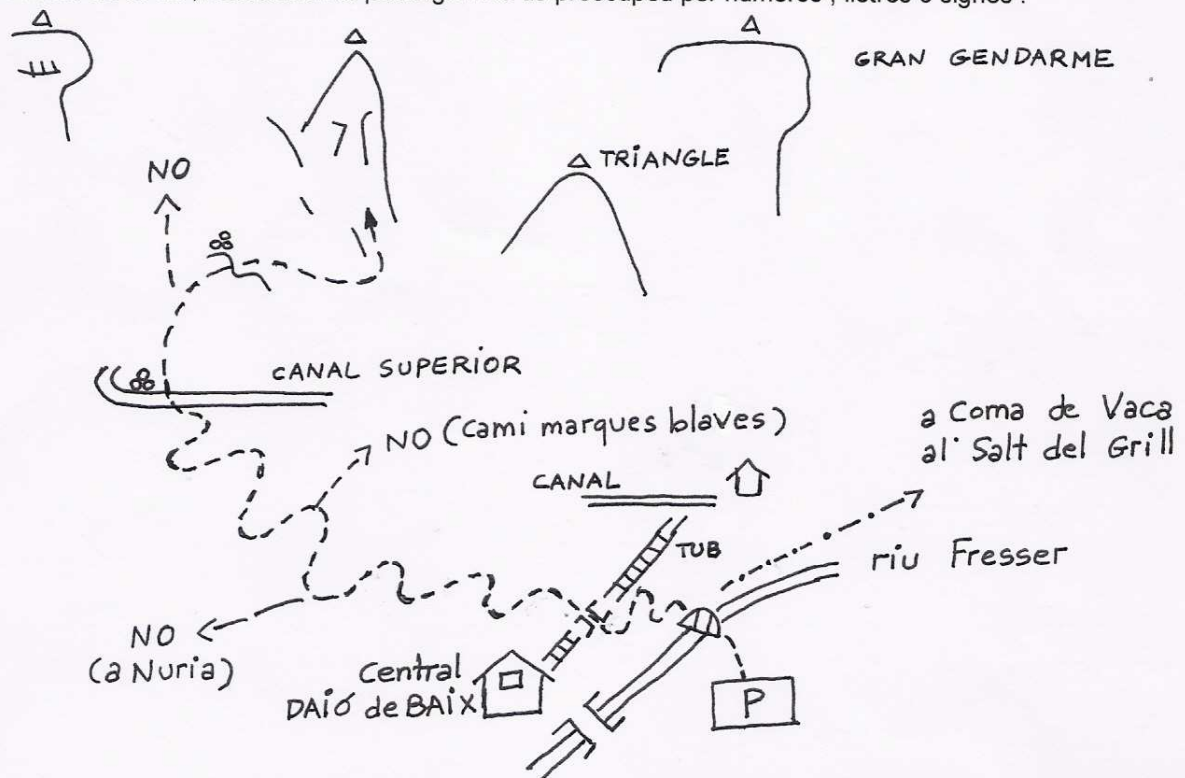 GRAN GENDARME
TRIANGLE
NO
CANAL SUPERIOR
NO (cami marques blaves)
a Coma de Vaca
al Salt del Grill
CANAL
TUB
riu Fresser
NO
(a Nuria)
Central
DAIÓ de BAIX
P